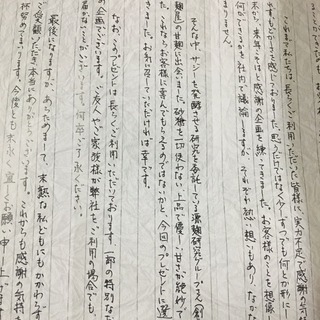 これまで私たちは長らくご利用いただいた皆様に実力不足で感謝の気持
やすもどかしさを感じておりました。思うだけではなく今、すっでも何とか形に
か、来年こそはと感謝の企画を練ってきました。お客様のことを想像
何ができるかを社内で議論しますが、それぞれ熱い想いもあり、なかな
ませんでした。
そんな中、サジーを発酵させる研究を委託している源麹研究グループさん創
麹屋の甘麹に出会いました。砂糖を一切使わない上品で優しい甘さが絶妙で
これならお客様に喜んでもらえるのではないかと、今回のプレゼントに選
きました。お気に召していただければ幸いです。
なお、このプレゼントは長らくご利用いただいております一部の特別な
の企画でございます。ご友人やご家族様が弊社をご利用の場合でも、
届いてことがございます。何卒ご了承ください。
最後になりますが、あらためまして、未熟な私どもにもかかわらず
ご愛顧いただき本当にありがとうございます。これからも感謝の気持
所努めてまいります。今度とも末永く宜しくお願い申し上げます